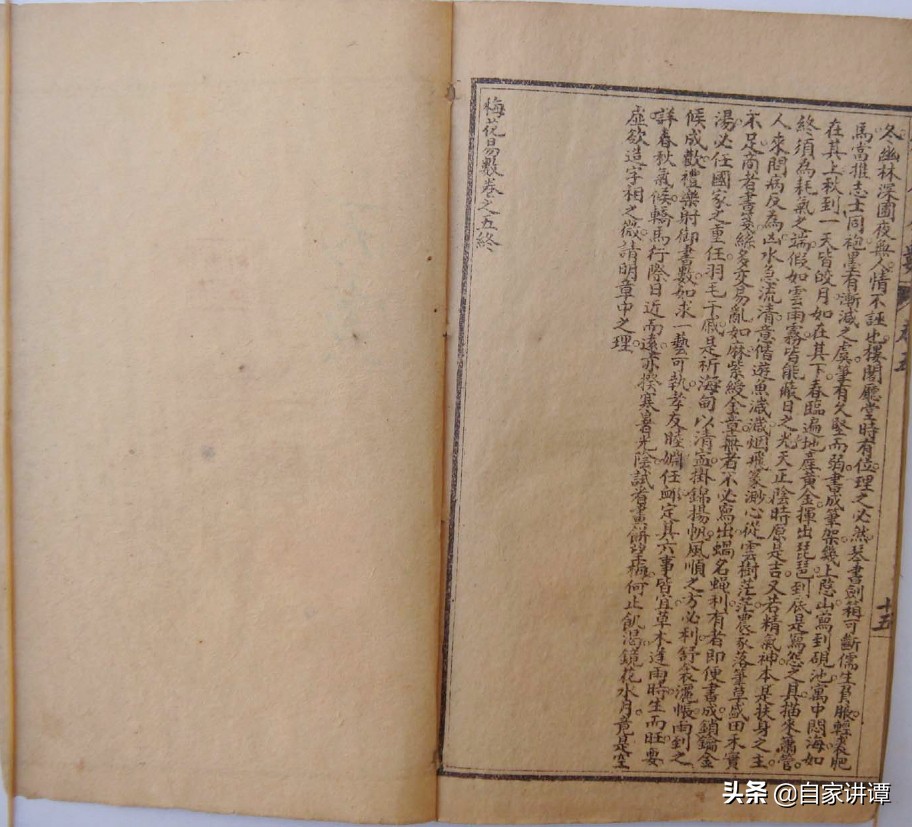 冬幽林深圃夜無人情不誣也樓閣廳堂時有位理之必然琴書劍箱可斷儒生負販輕裘肥
馬當推志士同袍墨有漸減之虞筆有久堅而弱書成筆架幾上愁山寫到硯池寓中悶海如
在其上秋到一天皆皎月如在其下春臨遍地產黃金揮出琵琶到底是寫怨之具描來簫管
終須為耗氣之端假如雲雨霧皆能蔽日之光天正陰時原是吉又若精氣神本是扶身之主
人來問病反為凶水急流清意偕遊魚濊濊烟飛篆渺心從雲樹茫茫農家落筆草盛田禾實
不足商者書箋絲多交易亂如麻紫綬金章無者不必寫出蝸名蝇利有者即便書成鎖鑰金
湯必任國家之重任羽毛干戚是祈海甸以清寧掛錦揚帆風順之方必利舒衾灑帳雨到之
候成歡禮樂射御書數如求一藝可執孝友睦婣任衈定其六事皆宜草木逢雨時生而旺要
詳春秋氣候轎馬行際日近而遠亦揆寒暑光陰試看畫餅望梅何止飢渴鏡花水月竟是空
虛欲造字相之微請明章中之理
梅花易數卷之五終
數 卷五
十五
头条 @自家讲谭